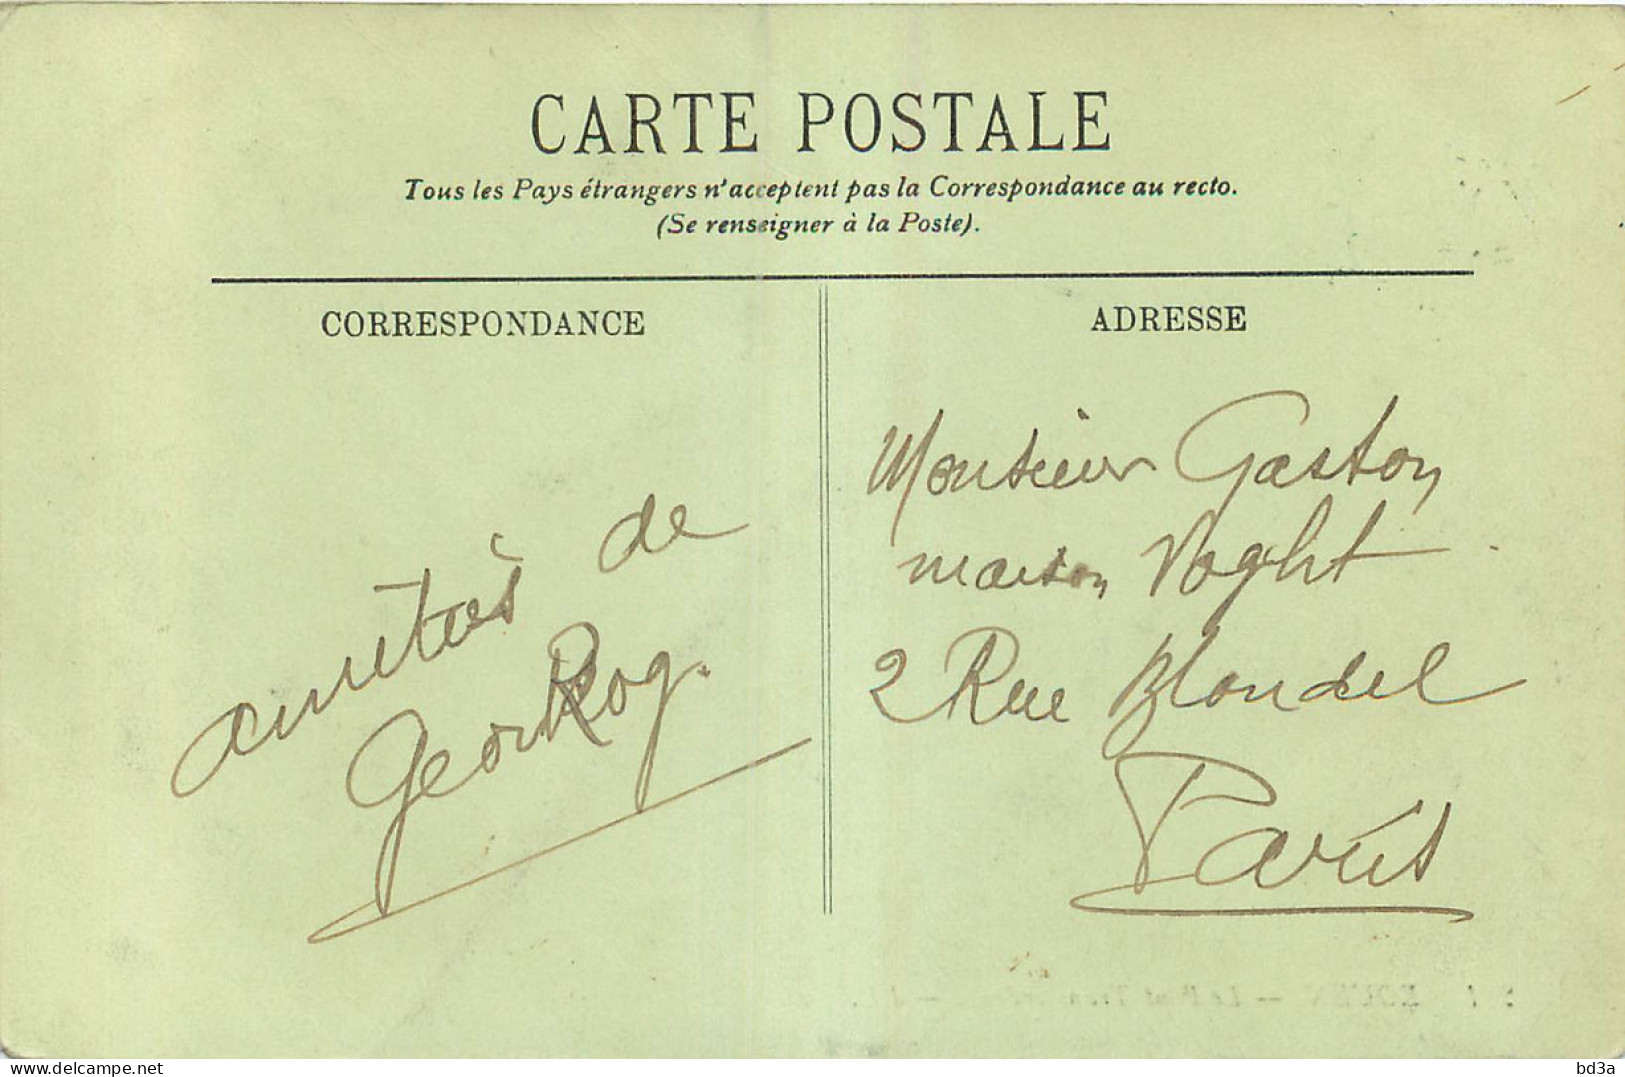 CARTE POSTALE
Tous les Pays étrangers n'acceptent pas la Correspondance au recto.
(Se renseigner à la Poste).
CORRESPONDANCE
amitiés de
Geor Rog.
ADRESSE
Monsieur Gaston
maison Voght
2 Rue Blondel
Paris
ROUEN — Le Pont Trans
delcampe.net
bd3a